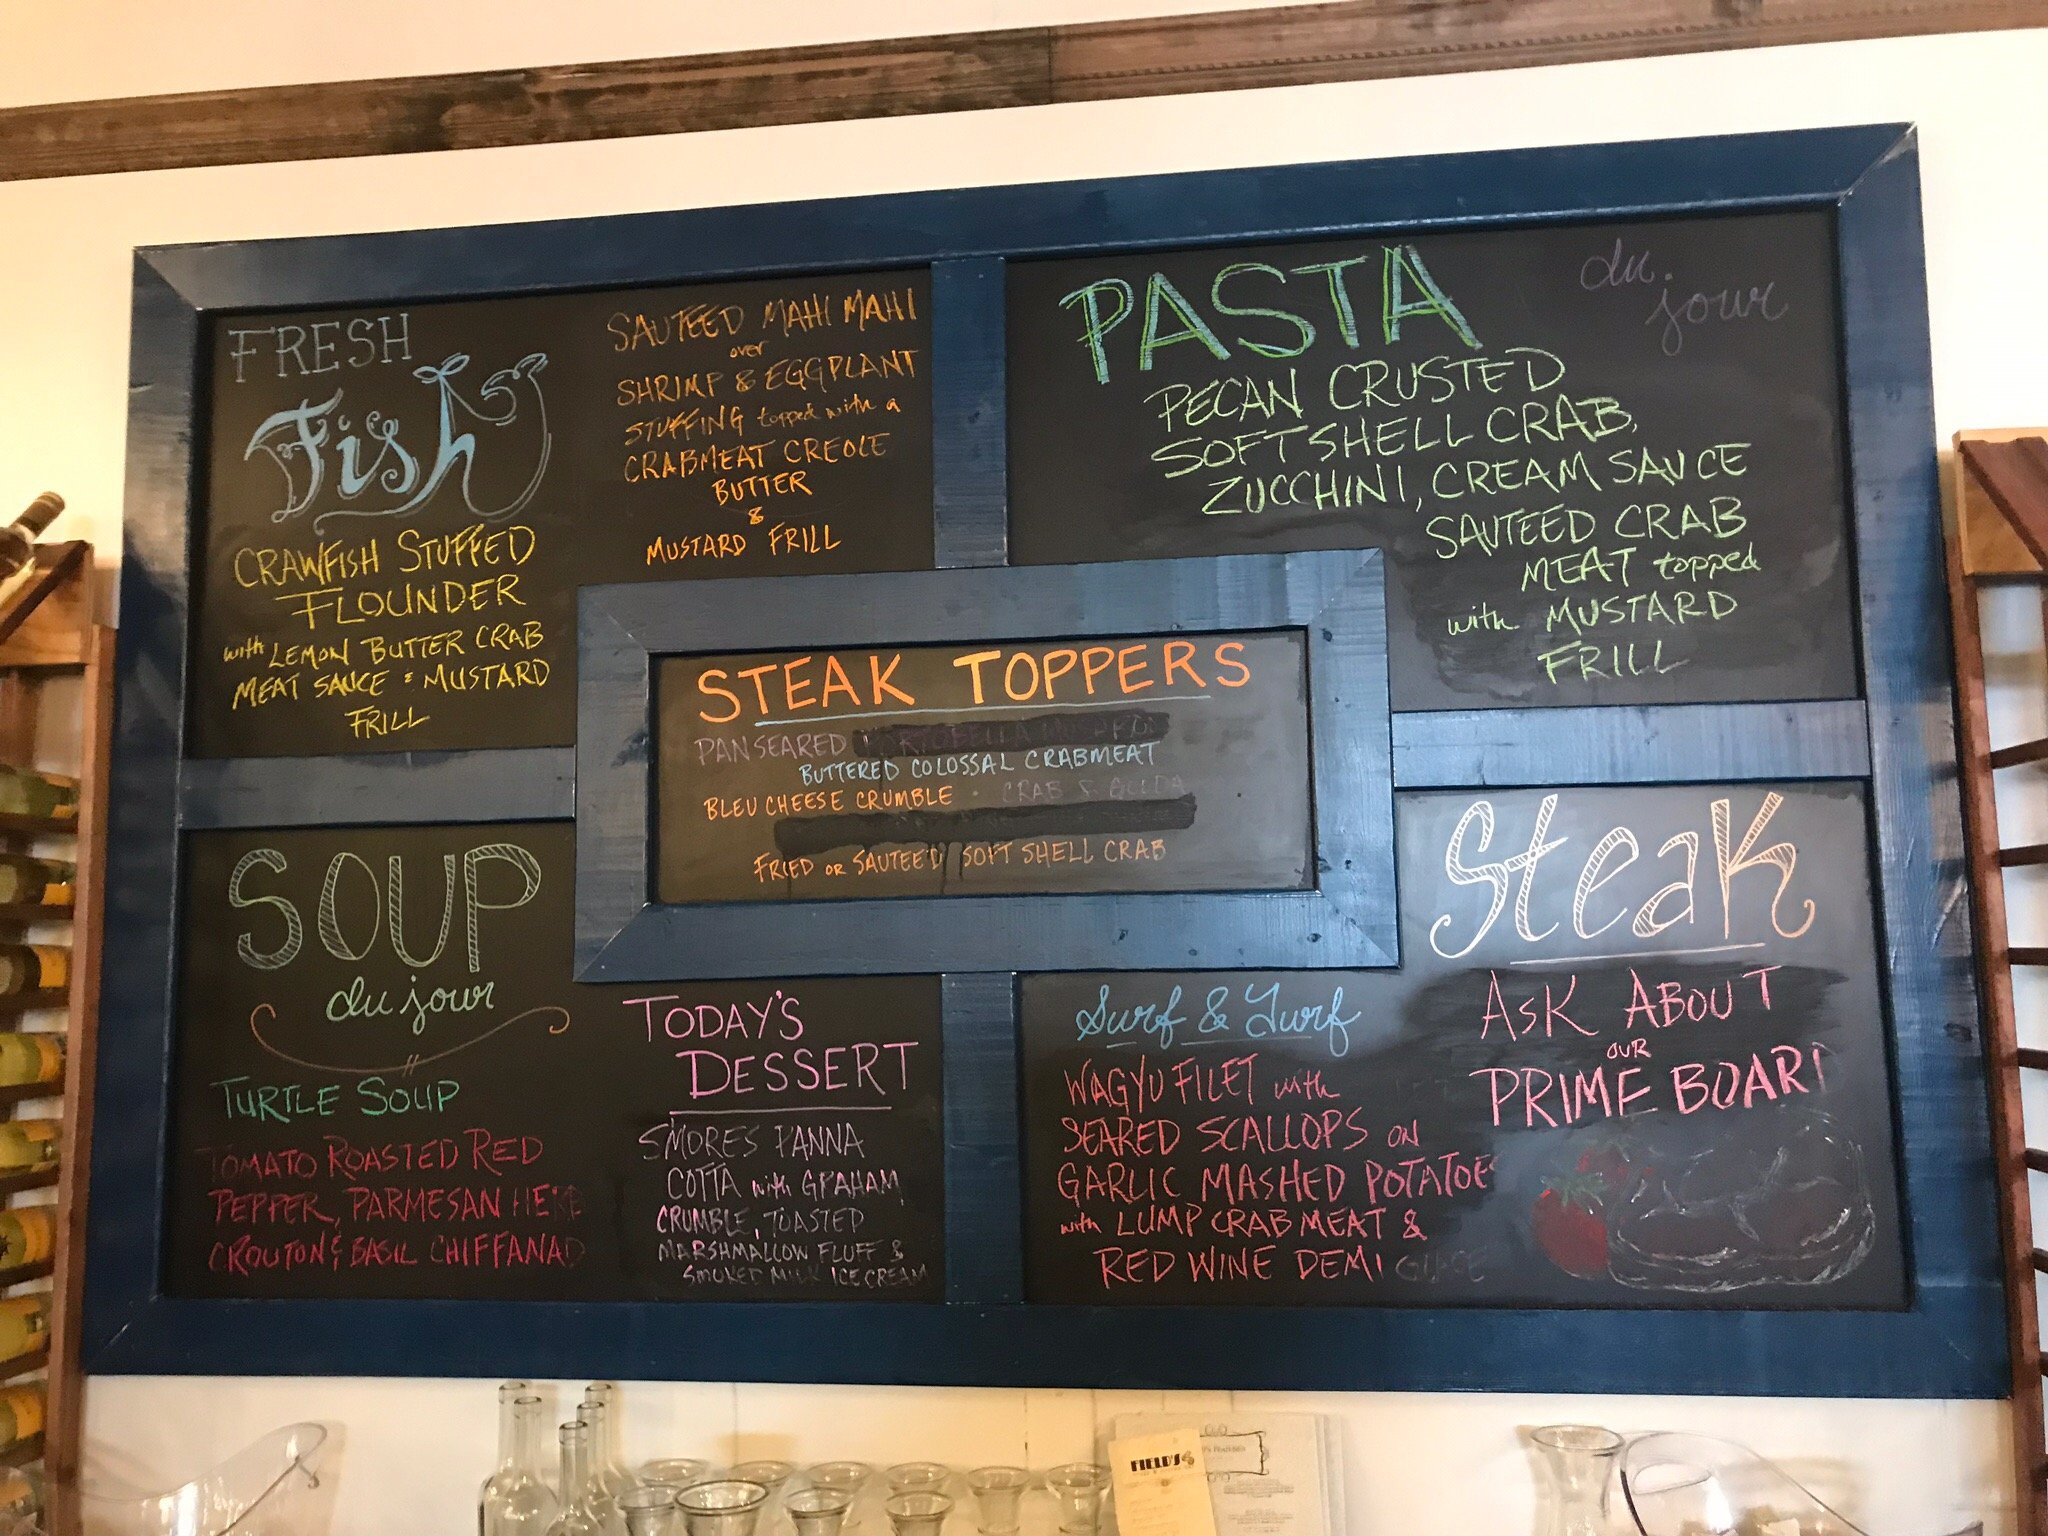 FRESH
Fish
CRAWFISH STUFFED
FLOUNDER
with LEMON BUTTER CRAB
MEAT SAUCE & MUSTARD
FRILL
SAUTEED MAHI MAHI
over
SHRIMP & EGGPLANT
STUFFING topped with a
CRABMEAT CREOLE
BUTTER
&
MUSTARD FRILL
PASTA
du jour
PECAN CRUSTED
SOFT SHELL CRAB,
ZUCCHINI, CREAM SAUCE
SAUTEED CRAB
MEAT topped
with MUSTARD
FRILL
STEAK TOPPERS
PAN SEARED
BUTTERED COLOSSAL CRABMEAT
BLEU CHEESE CRUMBLE · CRAB & GOUDA
FRIED OR SAUTEE'D SOFT SHELL CRAB
SOUP
du jour
TURTLE SOUP
TOMATO ROASTED RED
PEPPER, PARMESAN HERB
CROUTON & BASIL CHIFFANAD
TODAY'S
DESSERT
S'MORES PANNA
COTTA with GRAHAM
CRUMBLE, TOASTED
MARSHMALLOW FLUFF &
SMOKED MILK ICE CREAM
Surf & Turf
WAGYU FILET with
SEARED SCALLOPS ON
GARLIC MASHED POTATOES
with LUMP CRAB MEAT &
RED WINE DEMI GLACE
Steak
ASK ABOUT
OUR
PRIME BOARD
FIELD'S